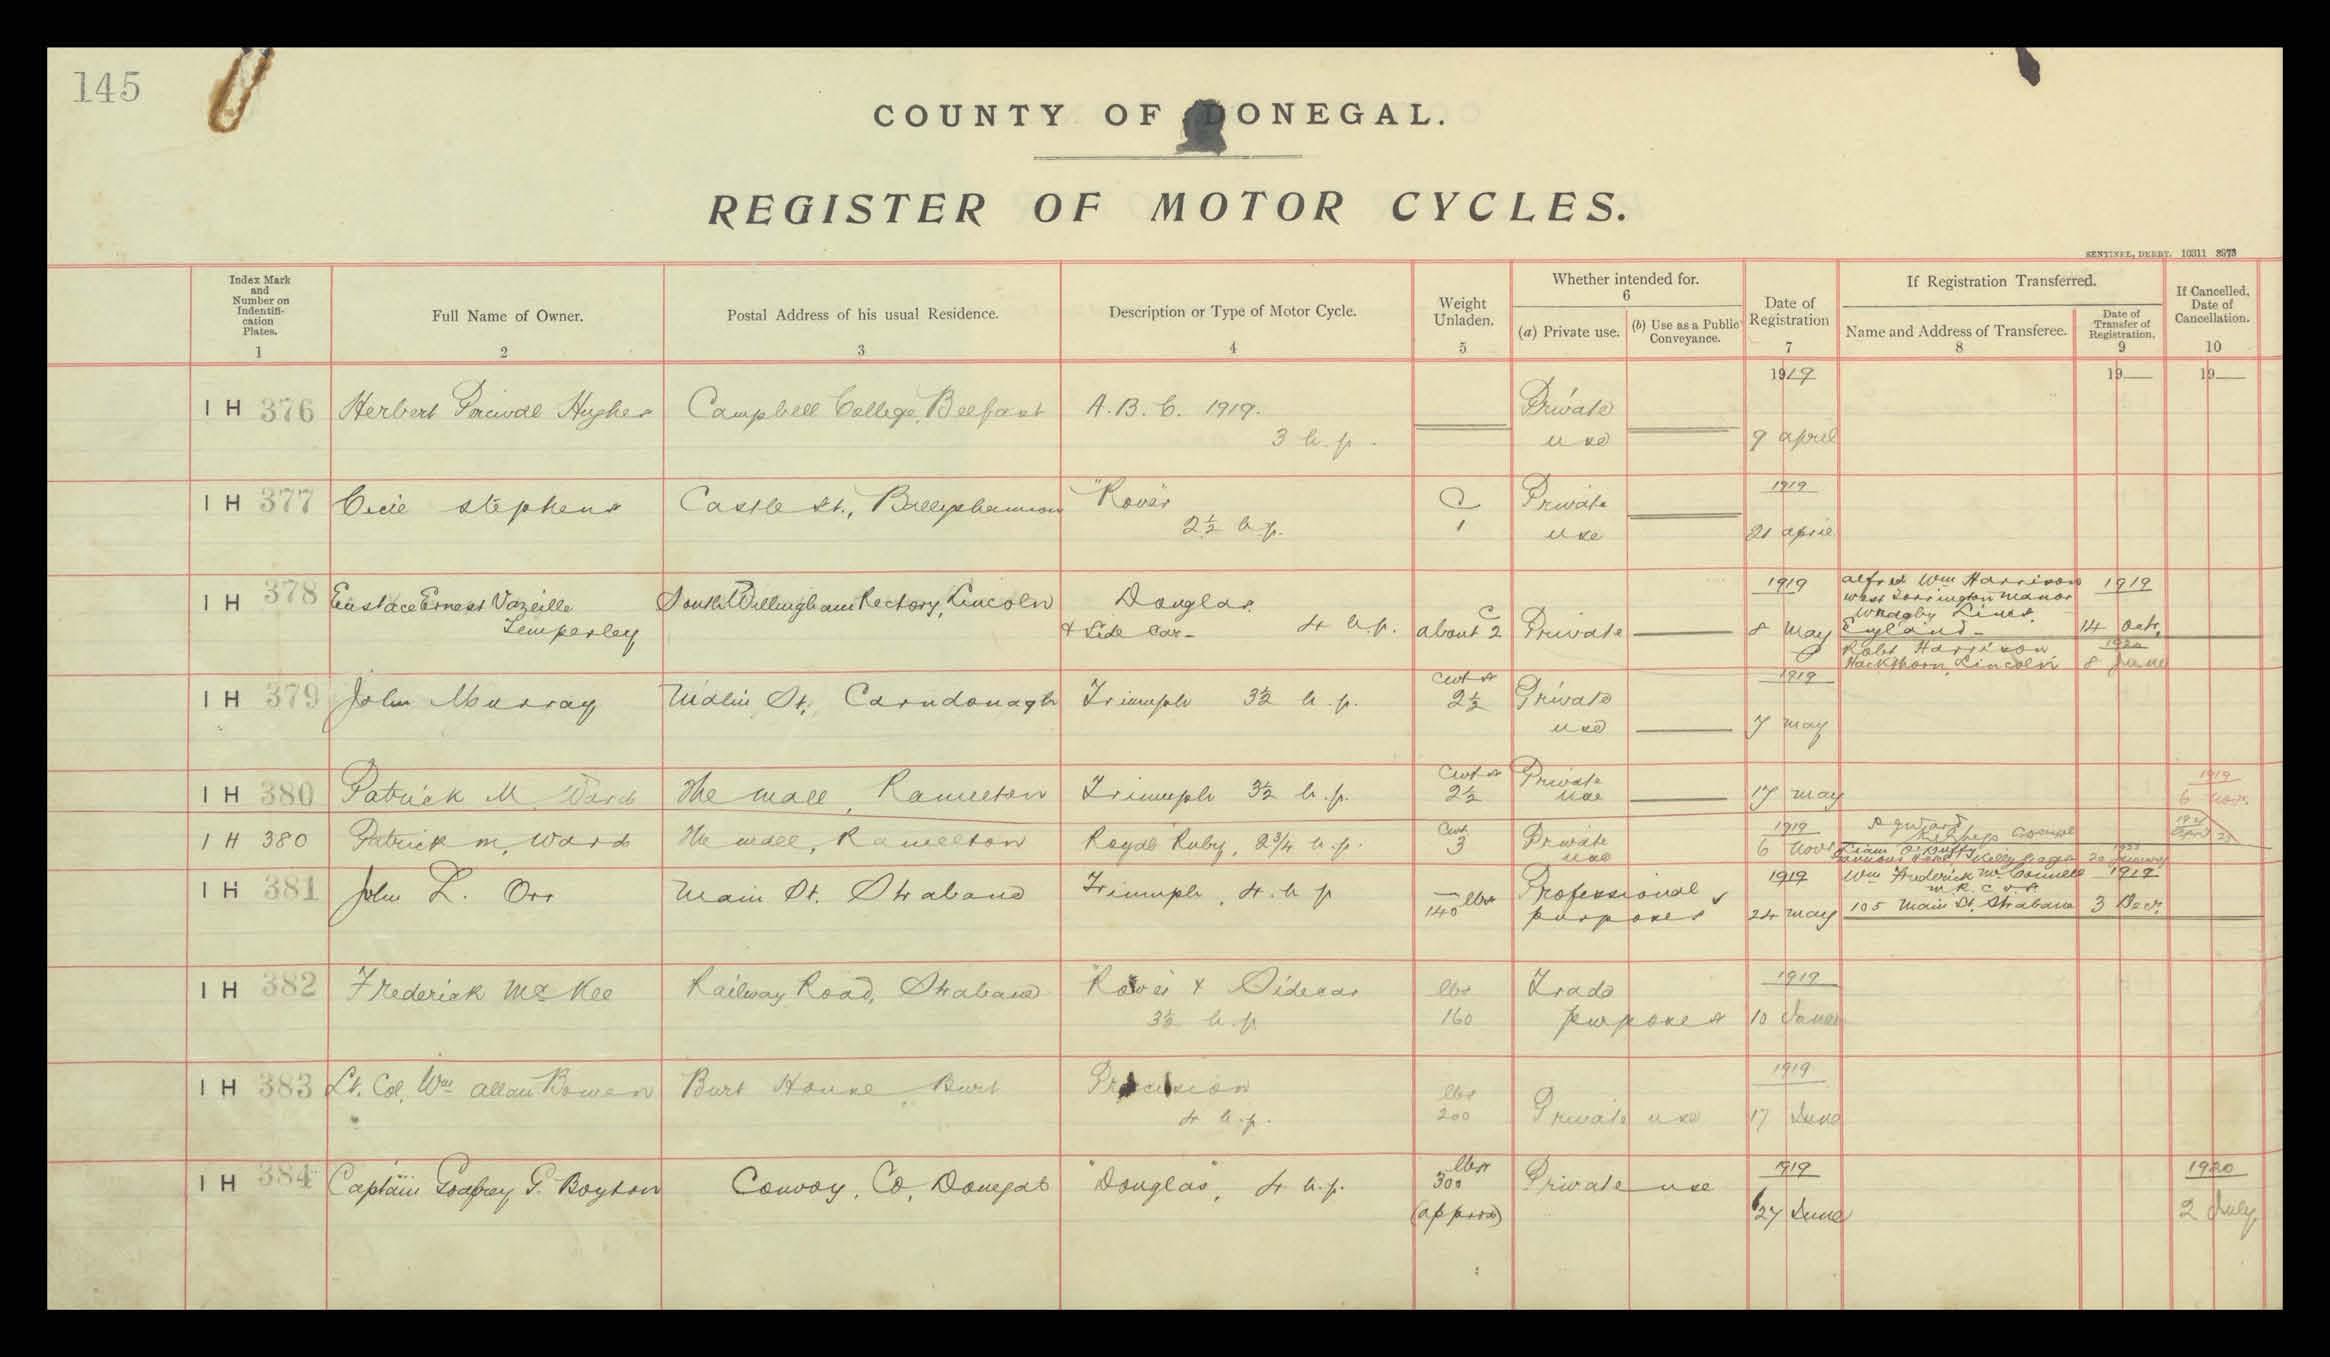 145
COUNTY OF DONEGAL.
REGISTER OF MOTOR CYCLES.
SENTINEL, DERRY. 10311 3973
Index Mark and Number on Indentifi-cation Plates. 1
Full Name of Owner. 2
Postal Address of his usual Residence. 3
Description or Type of Motor Cycle. 4
Weight Unladen. 5
Whether intended for. 6
(a) Private use.
(b) Use as a Public Conveyance.
Date of Registration 7
If Registration Transferred.
Name and Address of Transferee. 8
Date of Transfer of Registration. 9
If Cancelled, Date of Cancellation. 10
1919 19 19
IH 376 Herbert Percival Hughes Campbell College, Belfast A.B.C. 1919. Private
3 h.p. use 9 April
1919
IH 377 Cecil Stephens Castle St., Ballyshannon "Rover" C Private
2½ h.p. 1 use 21 April
1919 Alfred Wm Harrison 1919
IH 378 Eustace Ernest Vazeille South Willingham Rectory, Lincoln Douglas C West Torrington Manor
Wragby Lincs.
Temperley & Side Car- 4 h.p. about 2 Private 8 May England- 14 Octr.
Robt Harrison 1920
Hackthorn, Lincoln 8 June
Cwts 1919
IH 379 John Murray Malin St, Carndonagh Triumph 3½ h.p. 2½ Private
use 7 May
Cwts Private 1919
IH 380 Patrick M Ward The Mall, Ramelton Triumph 3½ h.p. 2½ use 17 May 6 Novr.
Cwt 1919
IH 380 Patrick M. Ward The Mall, Ramelton Royal Ruby, 2¾ h.p. 3 Private
use 6 Novr
1919 Wm Frederick McConnell 1919
M.R.C.V.S.
IH 381 John L. Orr Main St. Strabane Triumph, 4. h p 140 lbs Professional
purposes 24 May 105 Main St. Strabane 3 Decr.
1919
IH 382 Frederick McKee Railway Road, Strabane "Rover & Sidecar lbs Trade
3½ h.p. 160 purposes 10 June
1919
IH 383 Lt. Col. Wm Allan Bowen Burt House, Burt Precision lbs
4 h.p. 200 Private use 17 June
lbs 1919 1920
IH 384 Captain Godfrey G. Boyton Convoy, Co, Donegal "Douglas", 4 h.p. 300 Private use
(approx) 27 June 2 July